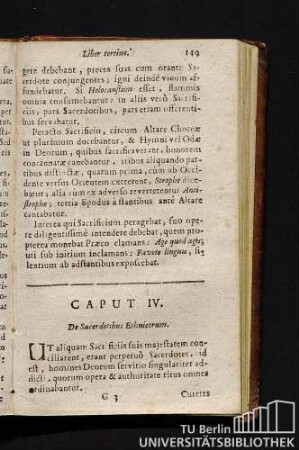 Liber tertius. 149
gere debebant, preces suas cum orante Sa-
cerdote conjungentes; igni deinde vinum af-
fundebatur. Si Holocaustum esset, flammis
omnia consumebantur: in aliis vero Sacrifi-
ciis, pars Sacerdotibus, pars etiam offerenti-
bus servabatur.
Peracto Sacrificio, circum Altare Choreæ
ut plurimum ducebantur, & Hymni vel Odæ
in Deorum, quibus sacrificaverant, honorem
concinnatæ canebantur, tribus aliquando par-
tibus distinctæ, quarum prima, cum ab Occi-
dente versus Orientem currerent, Strophe dice-
batur; alia cum ex adverso reverterentur Anti-
strophe; tertia Epodus à stantibus ante Altare
cantabatur.
Interea qui Sacrificium peragebat, suo ope-
re diligentissimè intendere debebat, quem pro-
pterea monebat Præco clamans: Age quod agis;
uti sub initium inclamans: Favete linguis, si-
lentium ab adstantibus exposcebat.
CAPUT IV.
De Sacerdotibus Ethnicorum.
UT aliquam Sacrificiis suis majestatem con-
ciliarent, erant perpetuò Sacerdotes, id
est, homines Deorum servitio singulariter ad-
dicti, quorum opera & authoritate ritus omnes
ordinabantur.
G 3 Curetes
TU Berlin
UNIVERSITÄTSBIBLIOTHEK